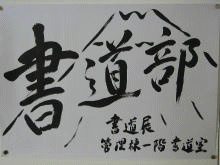 書道部
書道展
管理棟一階 書道室